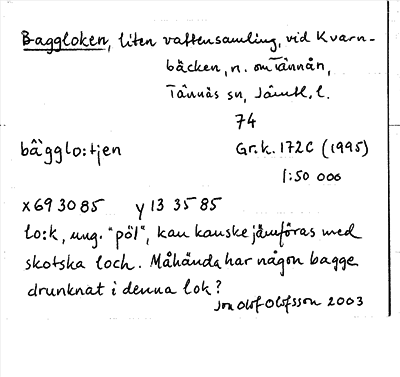 Baggloken, liten vattensamling, vid Kvarn-
bäcken, n. om Tännån,
Tännäs sn, Jämtl. l.
74
bàgglo:tjen Gr.k. 172C (1995)
1:50 000
x 69 30 85 y 13 35 85
lo:k, ung. "pöl", kan kanske jämföras med
skotska loch. Måhända har någon bagge
drunknat i denna lok?
Jon Olof Olofsson 2003